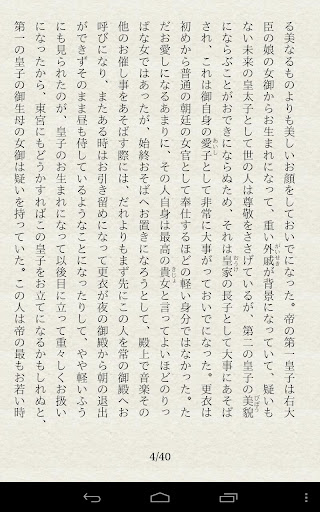 る美なるものよりも美しいお顔をしておいでになった。帝の第一皇子は右大
臣の娘の女御からお生まれになって、重い外戚が背景になっていて、疑いも
ない未来の皇太子として世の人は尊敬をささげているが、第二の皇子の美貌
にならぶことがおできにならぬため、それは皇家の長子として大事にあそば
され、これは御自身の愛子として非常に大事がっておいでになった。更衣は
初めから普通の朝廷の女官として奉仕するほどの軽い身分ではなかった。た
だお愛しになるあまりに、その人自身は最高の貴女と言ってよいほどのりっ
ぱな女ではあったが、始終おそばへお置きになろうとして、殿上で音楽その
他のお催し事をあそばす際には、だれよりもまず先にこの人を常の御殿へお
呼びになり、またある時はお引き留めになって更衣が夜の御殿から朝の退出
ができずそのまま昼も侍しているようなことになったりして、やや軽いふう
にも見られたのが、皇子のお生まれになって以後目に立って重々しくお扱い
になったから、東宮にもどうかすればこの皇子をお立てになるかもしれぬと、
第一の皇子の御生母の女御は疑いを持っていた。この人は帝の最もお若い時
4/40